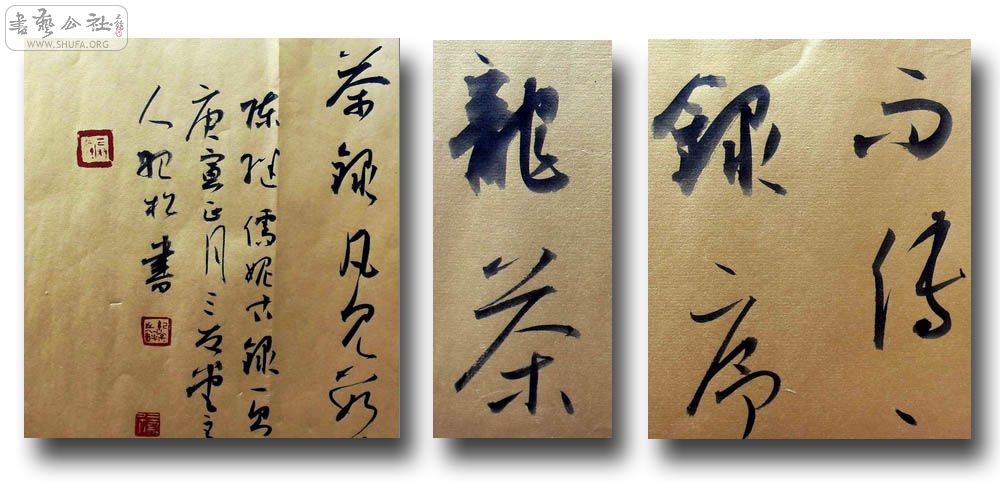 書藝公社
WWW.SHUFA.ORG
茶錄凡見數
陈继儒妮古錄一
庚寅正月三堂主
人松書
龍茶
而傳、
錄序